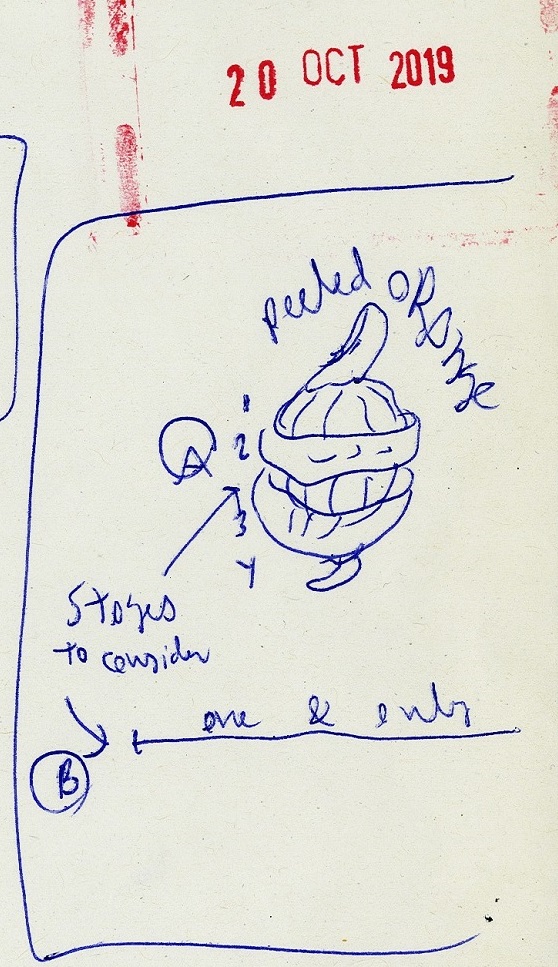 20 OCT 2019
peeled ORANGE
1
A 2
3
4
Stages
to consider
one & only
B